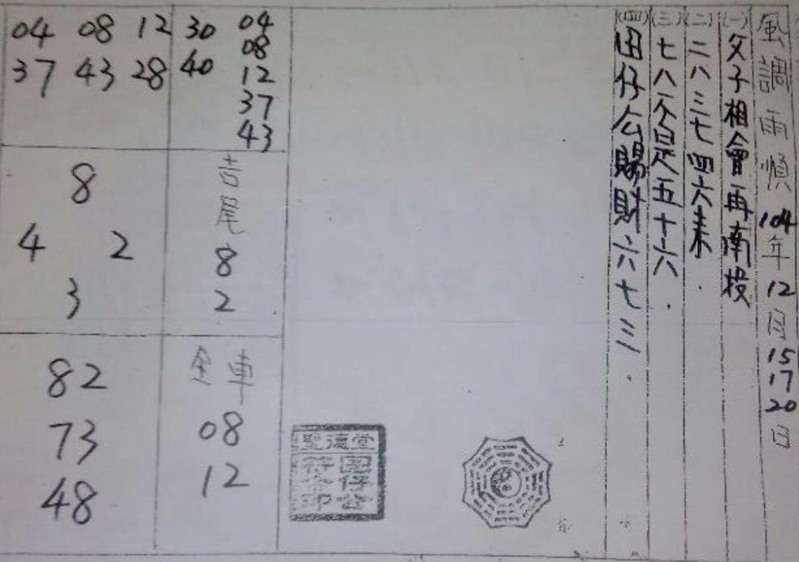 風調雨順 104年12月15 17 20日
(一)父子相會再南投
(二)二八三七四六来.
(三)七八不是五十六.
(四)囝仔公賜財六七三.
04 08 12
37 43 28
30 04
40 08
12
37
43
8
4 2
3
吉尾
8
2
82
73
48
全車
08
12
聖德堂
囝仔公